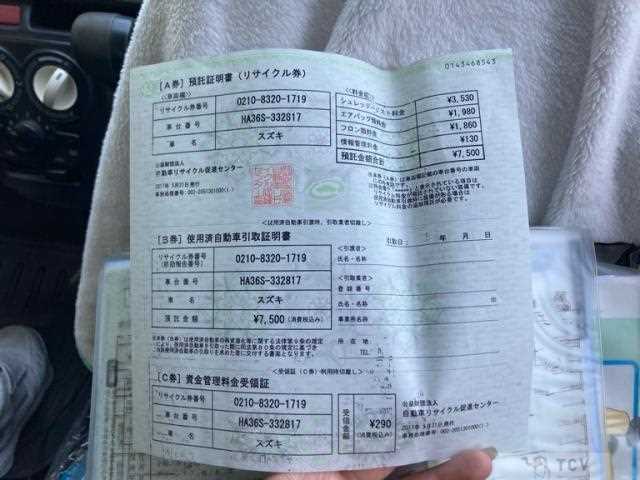 0743468543
[A券] 預託証明書(リサイクル券)
<車両欄>
リサイクル券番号 0210-8320-1719
車台番号 HA36S-332817
車名 スズキ
<料金欄>
シュレッダーダスト料金 ¥3,530
エアバッグ類料金 ¥1,980
フロン類料金 ¥1,860
情報管理料金 ¥130
預託金額合計 ¥7,500
公益財団法人
自動車リサイクル促進センター
<以下使用済自動車引渡時、引取業者切離し>
[B券] 使用済自動車引取証明書
引取日: 年 月 日
リサイクル券番号
(移動報告番号) 0210-8320-1719
車台番号 HA36S-332817
車名 スズキ
預託金額 ¥7,500 (消費税込み)
<引渡者>
氏名・名称
<引取業者>
登録番号
氏名・名称
事業所名称
所在地
TEL
<受領証(C券)利用時切離し>
[C券] 資金管理料金受領証
リサイクル券番号 0210-8320-1719
車台番号 HA36S-332817
車名 スズキ
受領金額 ¥290 (消費税込み)
公益財団法人
自動車リサイクル促進センター
TCV